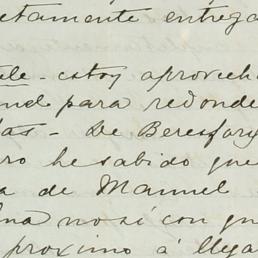 etamente entrega
ele - estoy aprovech
und para redonde
as - De Beresford
ro he sabido que
a de Manuel
na no sé con qu
proximo á llega